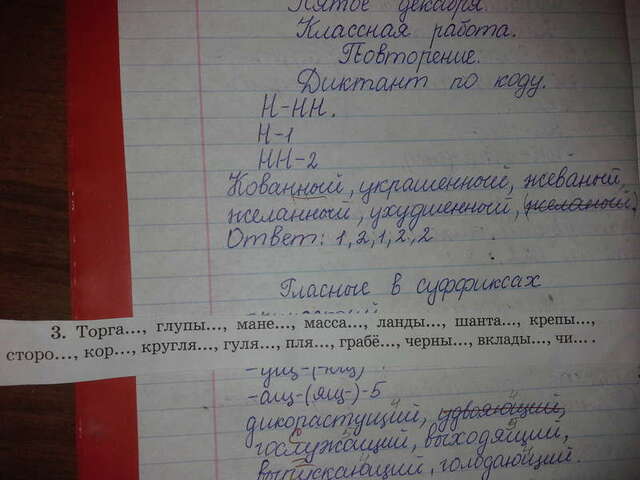 Пятое декабря.
Классная работа.
Повторение.
Диктант по коду.
Н-НН.
Н-1
НН-2
Кованный, украшенный, жеваный,
желанный, ухудшенный, желаный.
Ответ: 1, 2, 1, 2, 2
Гласные в суффиксах
3. Торга..., глупы..., мане..., масса..., ланды..., шанта..., крепы...,
сторо..., кор..., кругля..., гуля..., пля..., грабё..., черны..., вклады..., чи... .
-ущ-(-ющ)
-ащ-(ящ)-5
дикорастущий, удвояющий,
госслужащий, выходящий,
выпускающий, голодающий.